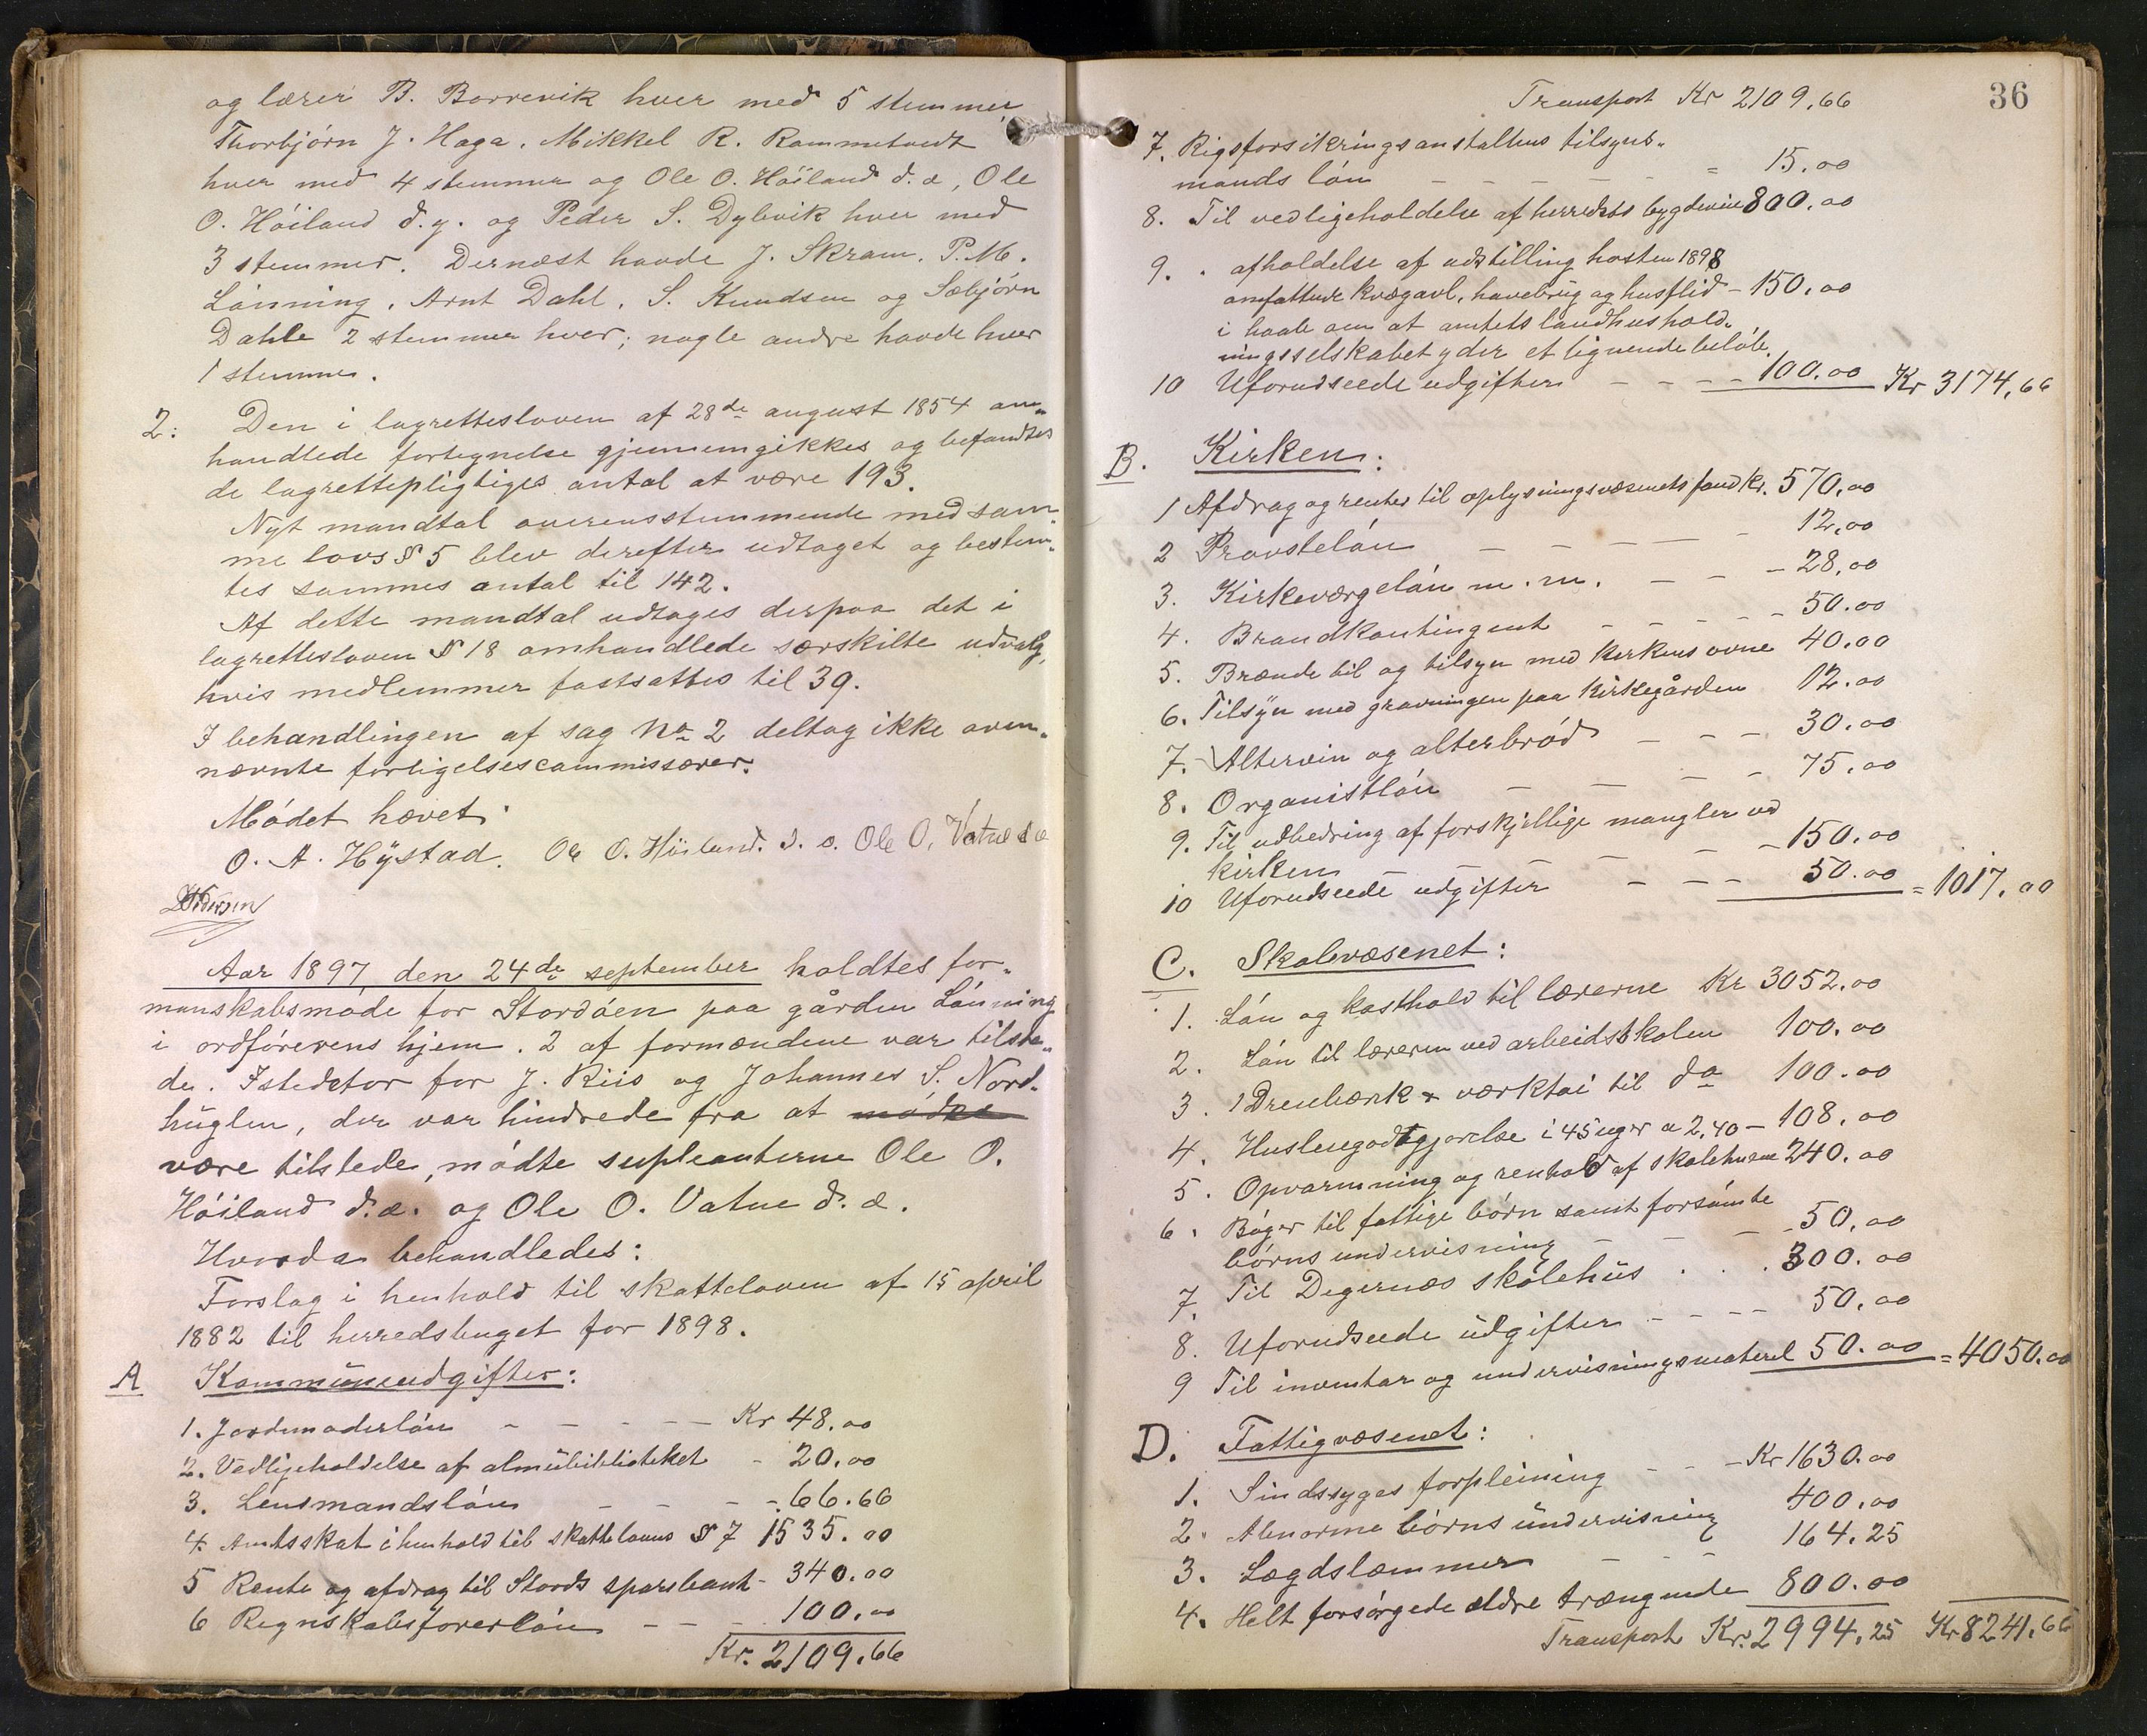 og lærer B. Borrevik hver med 5 stemmer,
Thorbjørn J. Haga, Mikkel R. Rommetvedt
hver med 4 stemmer og Ole O. Höiland d. æ, Ole
O. Höiland d. y. og Peder S. Dybvik hver med
3 stemmer. Dernæst havde J. Skram, P. M.
Lönning, Arnt Dahl, S. Knudsen og Sæbjörn
Dahle 2 stemmer hver; nogle andre havde hver
1 stemme.
2: Den i lagretteslov­en af 28de august 1854 om-
handlede fortegnelse gjennemgikkes og befandtes
de lagrettepligtiges antal at være 193.
Nyt mandtal overensstemmende med sam-
me lovs § 5 blev derefter udtaget og bestem-
tes sammes antal til 142.
Af dette mandtal udtages derpaa det i
lagrettesloven § 18 omhandlede særskilte udvalg,
hvis medlemmer fastsattes til 39.
I behandlingen af sag No 2 deltog ikke oven-
nævnte forligelsescommissærer.
Mödet hævet.
O. A. Hÿstad. Ole O. Höiland. d. æ. Ole O. Vatne d æ
Aar 1897 den 24de september holdtes for-
manskabsmöde for Stordöen paa gården Lönning
i ordförerens hjem. 2 af formændene var tilste-
de. Istedetfor for J. Riis og Johannes S. Nord-
huglen, der var hindrede fra at mödte
være tilstede, mödte supleanterne Ole O.
Höiland d. æ. og Ole O. Vatne d. æ.
Hvorda behandledes:
Forslag i henhold til skatteloven af 15 april
1882 til herredsbuget for 1898.
A Kommuneudgifter:
1. Jordmoderlön - - - - - Kr 48.00
2. Vedligeholdelse af almuebiblioteket - 20.00
3. Lensmandslön - - - - 66.66
4. Amtsskat i henhold til skattelovens § 7 1535.00
5 Rente og afdrag til Stords sparebank - 340.00
6 Regnskabsförerlön - - - 100.00
Kr. 2109.66
36
Transport Kr 2109.66
7. Rigsforsikringsanstaltens tilsyns-
mands lön - - - - - = 15.00
8. Til vedligeholdelse af herredets bygdeveie 800.00
9. . afholdelse af udstilling hosten 1898
omfattende kvægavl, havebrug og husflid - 150.00
i haab om at amtets landhushold-
ningsselskabet yder et lignende belöb.
10 Uforudseede udgifter - - - - 100.00 Kr 3174,66
B. Kirken:
1 Afdrag og renter til oplysningsvæsenets fond Kr. 570.00
2 Provstelön - - - - - 12.00
3. Kirkeværgelön m. m. - - - 28.00
4. Brandkontingent - - - - - 50.00
5. Brænde til og tilsyn med kirkens ovne 40.00
6. Tilsÿn med gravningen paa kirkegården 12.00
7. Altervin og alterbröd - - - 30.00
8. Organistlön - - - - 75.00
9. Til udbedring af forskjellige mangler ved
kirken - - - - - 150.00
10 Uforudseede udgifter - - - 50.00 = 1017.00
C. Skolevæsenet:
1. Lön og kosthold til lærerne Kr 3052.00
2. Lön til læreren ved arbeidsskolen 100.00
3. 1 Dreiebænk & værktöi til do 100.00
4. Husleiegodtgjörelse i 45 uger a 2,40 - 108.00
5. Opvarmning og renhold af skolehusene 240.00
6. Böger til fattige börn samt forsömte
börns undervisning - - - 50.00
7. Til Degernæs skolehus . . . 300.00
8. Uforudseede udgifter - - - - 50.00
9 Til inventar og undervisningsmateriel 50.00 = 4050.00
D. Fattigvæsenet:
1. Sindssyges forpleining - - - Kr 1630.00
2. Abnorme börns undervisning 400.00
3. Lægdslæmmer - - - 164.25
4. Helt forsörgede ældre trængende 800.00
Transport Kr. 2994.25 Kr 8241.66